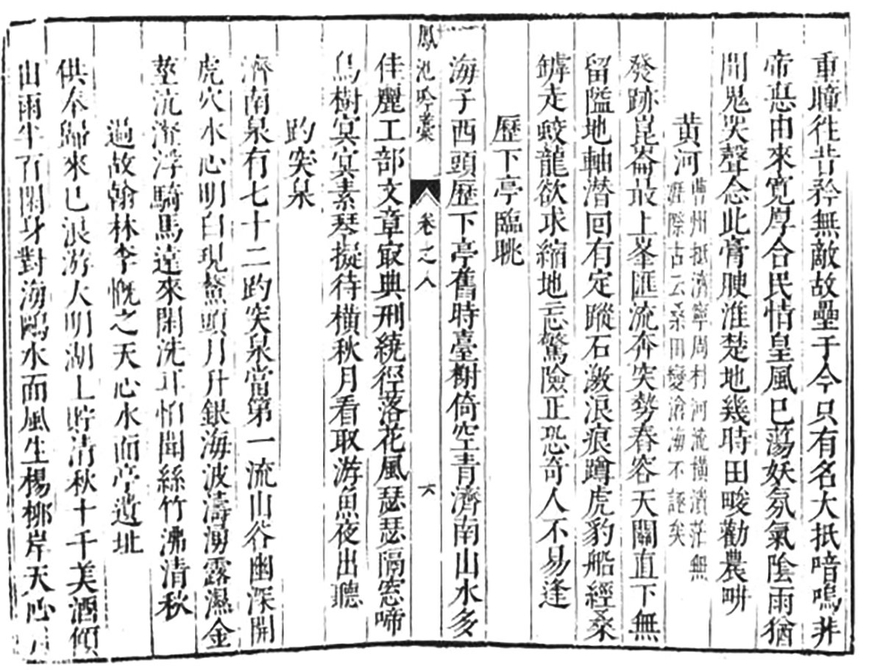 重瞳往昔矜無敵故壘于今只有名大抵喑嗚非
帝悳由來寬厚合民情皇風已蕩妖氛氣陰雨猶
聞鬼哭聲念此膏腴淮楚地幾時田畯勸農畊
黃河
曹州抵濟寧周村河流橫潰茫無
涯際古云桑田變滄海不誣矣
發跡崑崙最上峯匯流奔突勢舂容天關直下無
留隘地軸潛回有定蹤石激浪痕蹲虎豹船經桑
罅走蛟龍欲求縮地忘驚險正恐奇人不易逢
歷下亭臨眺
海子西頭歷下亭舊時臺榭倚空青濟南山水多
鳳池吟藁
卷之八
六
佳麗工部文章寂典刑繞徑落花風瑟瑟隔窓啼
鳥樹冥冥素琴擬待橫秋月看取游魚夜出聽
趵突泉
濟南泉有七十二趵突泉當第一流山谷幽深開
虎穴水心明白現鰲頭月升銀海波濤湧露濕金
莖沆瀣浮騎馬遠來閑洗耳怕聞絲竹沸清秋
過故翰林李慨之天心水面亭遺址
供奉歸來已浪游大明湖上貯清秋十千美酒傾
山雨半百閑身對海鷗水面風生楊柳岸天心